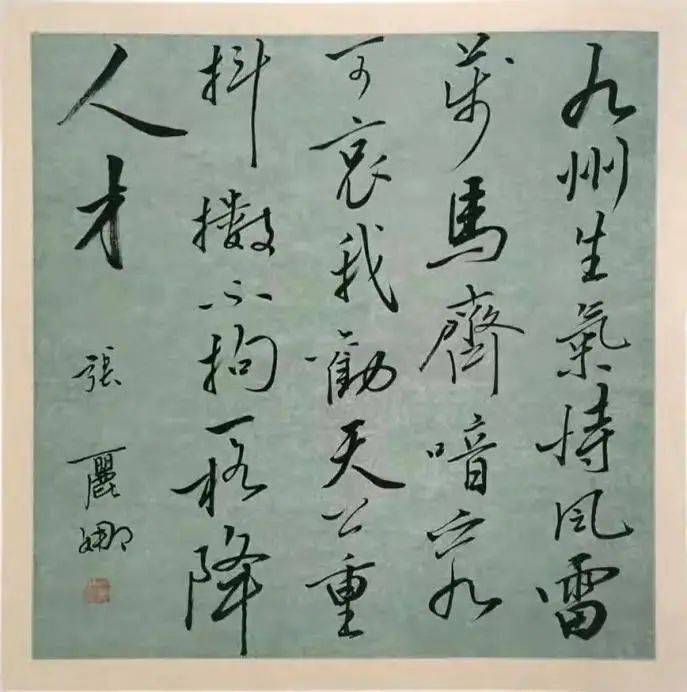 九州生氣恃風雷
萬馬齊喑究
可哀我勸天公重
抖擻不拘一格降
人才
張麗娜